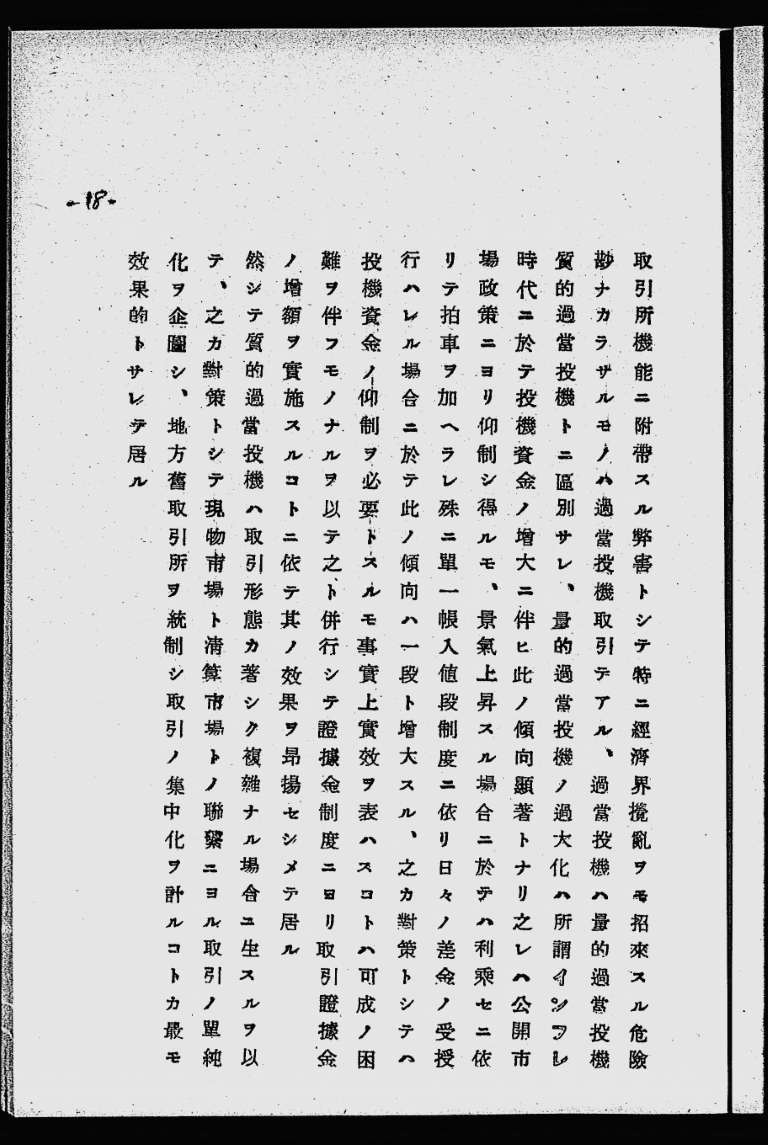 取引所機能ニ附帶スル弊害トシテ特ニ經濟界攪亂ヲモ招來スル危險
尠ナカラザルモノハ過當投機取引デアル、過當投機ハ量的過當投機
質的過當投機トニ區別サレ、量的過當投機ノ過大化ハ所謂インフレ
時代ニ於テ投機資金ノ增大ニ伴ヒ此ノ傾向顯著トナリ之レハ公開市
場政策ニヨリ仰制シ得ルモ、景氣上昇スル場合ニ於テハ利乘セニ依
リテ拍車ヲ加ヘラレ殊ニ單一帳入値段制度ニ依リ日々ノ差金ノ受授
行ハレル場合ニ於テ此ノ傾向ハ一段ト增大スル、之カ對策トシテハ
投機資金ノ仰制ヲ必要トスルモ事實上實效ヲ表ハスコトハ可成ノ困
難ヲ伴フモノナルヲ以テ之ト併行シテ證據金制度ニヨリ取引證據金
ノ增額ヲ實施スルコトニ依テ其ノ效果ヲ昂揚セシメテ居ル
然シテ質的過當投機ハ取引形態カ著シク複雜ナル場合ニ生スルヲ以
テ、之カ對策トシテ現物市場ト清算市場トノ聯繫ニヨル取引ノ單純
化ヲ企圖シ、地方舊取引所ヲ統制シ取引ノ集中化ヲ計ルコトカ最モ
效果的トサレテ居ル
-18-